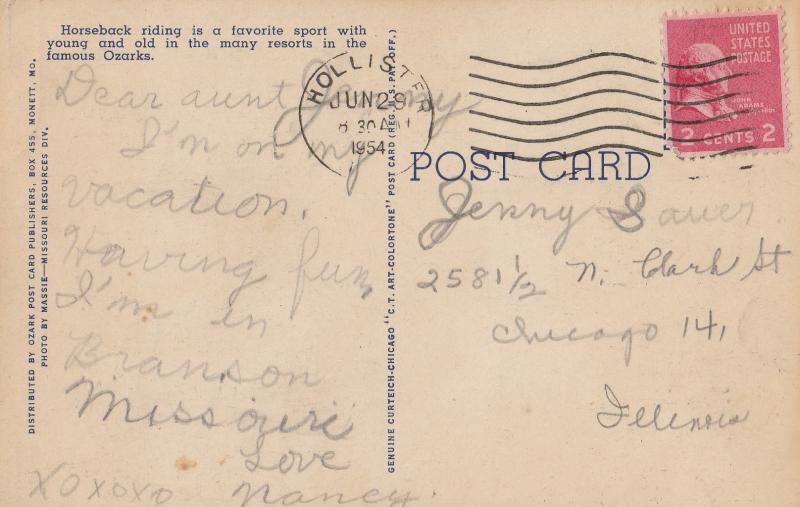 Horseback riding is a favorite sport with
young and old in the many resorts in the
famous Ozarks.
DISTRIBUTED BY OZARK POST CARD PUBLISHERS, BOX 455, MONETT, MO.
PHOTO BY MASSIE—MISSOURI RESOURCES DIV.
Dear aunt Jenny
I'm on my
vacation.
Having fun,
I'm in
Branson
Missouri
Love
xoxoxo Nancy.
GENUINE CURTEICH-CHICAGO "C.T. ART-COLORTONE" POST CARD (REG. U.S. PAT. OFF.)
HOLLISTER
JUN 29
8 30 AM
1954
UNITED
STATES
POSTAGE
JOHN
ADAMS
2 CENTS 2
POST CARD
Jenny Sauer
2581 1/2 N. Clark St
Chicago 14,
Illinois